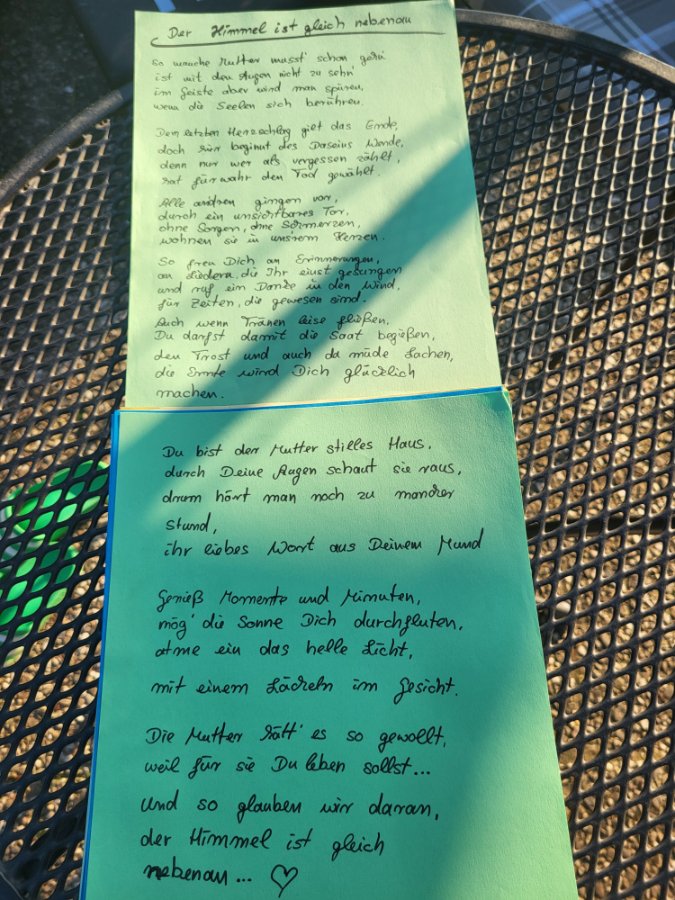 Der Himmel ist gleich nebenan
So manche Mutter musst' schon geh'n
ist mit den Augen nicht zu seh'n
im Geiste aber wird man spüren,
wenn die Seelen sich berühren.
Dem letzten Herzschlag gielt das Ende,
doch hier beginnt des Daseins Wende,
denn nur wer als vergessen zählt,
hat fürwahr den Tod gewählt.
Alle andren gingen vor,
durch ein unsichtbares Tor,
ohne Sorgen, ohne Schmerzen,
wohnen sie in unsrem Herzen.
So freu Dich an Erinnerungen,
an Liedern, die Ihr einst gesungen
und ruf ein Danke in den Wind,
für Zeiten, die gewesen sind.
Auch wenn Tränen leise fließen,
Du darfst damit die Saat begießen,
den Trost und auch da müde Lachen,
die Ernte wird Dich glücklich
machen.
Du bist der Mutter stilles Haus,
durch Deine Augen schaut sie raus,
drum hört man noch zu mancher
Stund,
ihr liebes Wort aus Deinem Mund
Genieß Momente und Minuten,
mög' die Sonne Dich durchfluten,
atme ein das helle Licht,
mit einem Lächeln im Gesicht.
Die Mutter hätt' es so gewollt,
weil für sie Du leben sollst...
Und so glauben wir daran,
der Himmel ist gleich
nebenan... ♡